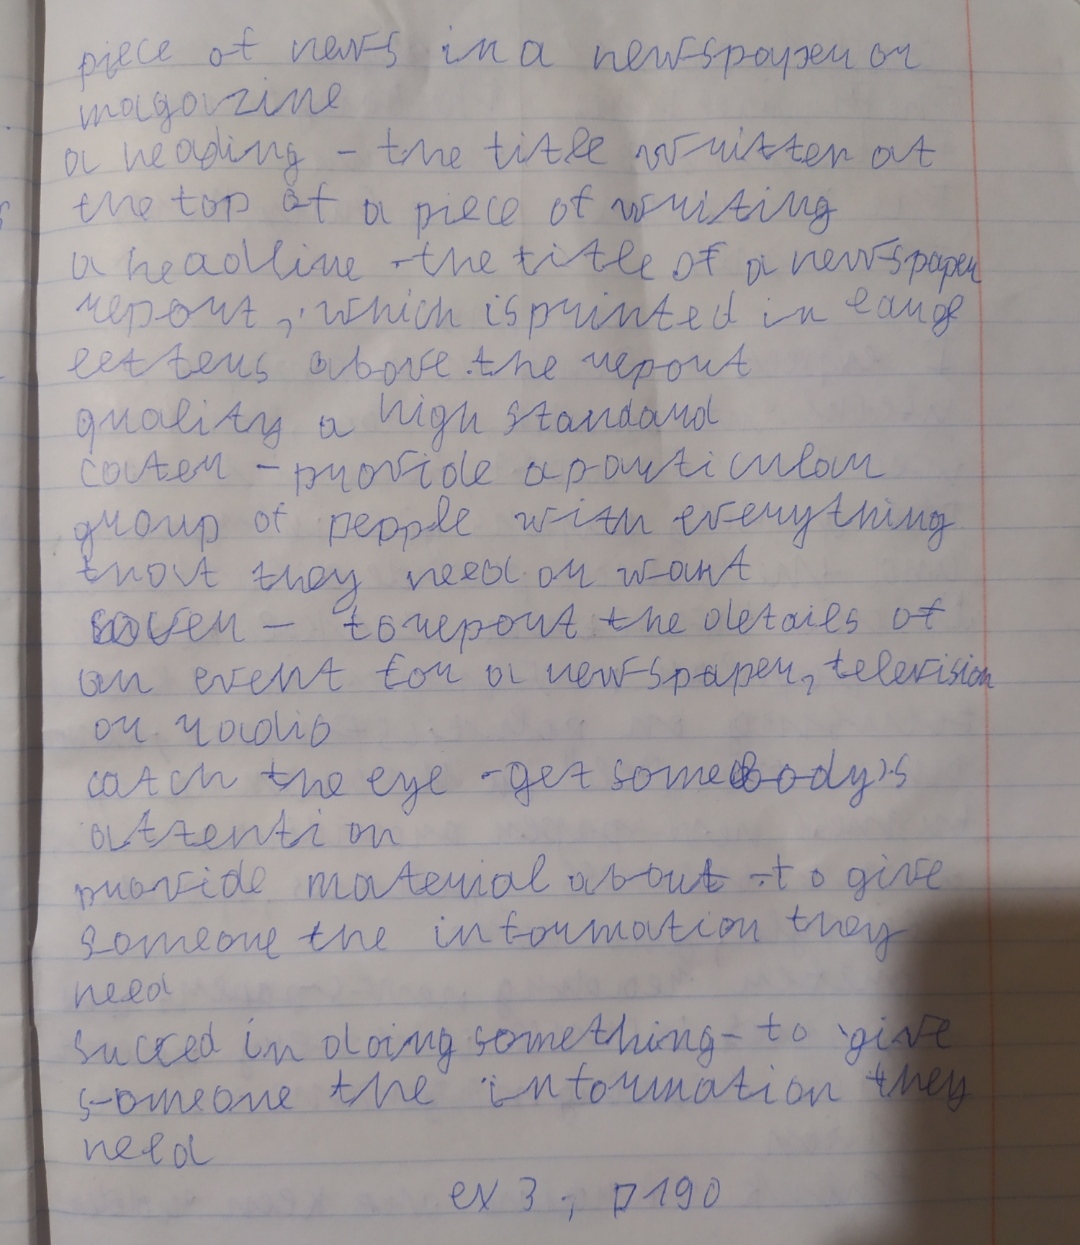 piece of news in a newspaper or
magazine
a heading - the title written at
the top of a piece of writing
a headline - the title of a newspaper
report, which is printed in large
letters above the report
quality a high standard
cater - provide a particular
group of people with everything
that they need or want
cover - to report the details of
an event for a newspaper, television
or radio
catch the eye - get somebody's
attention
provide material about - to give
someone the information they
need
succed in doing something - to give
someone the information they
need
ex 3, p 190